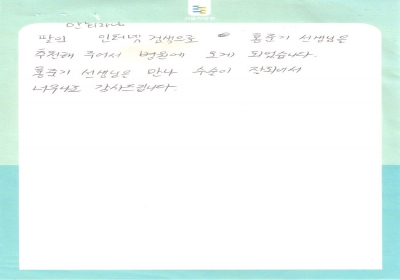 안녕하세요
딸의 인터넷 검색으로 홍준기 선생님을
추천해 주어서 병원에 오게 되었습니다.
홍준기 선생님을 만나 수술이 잘되어서
너무나도 감사드립니다.